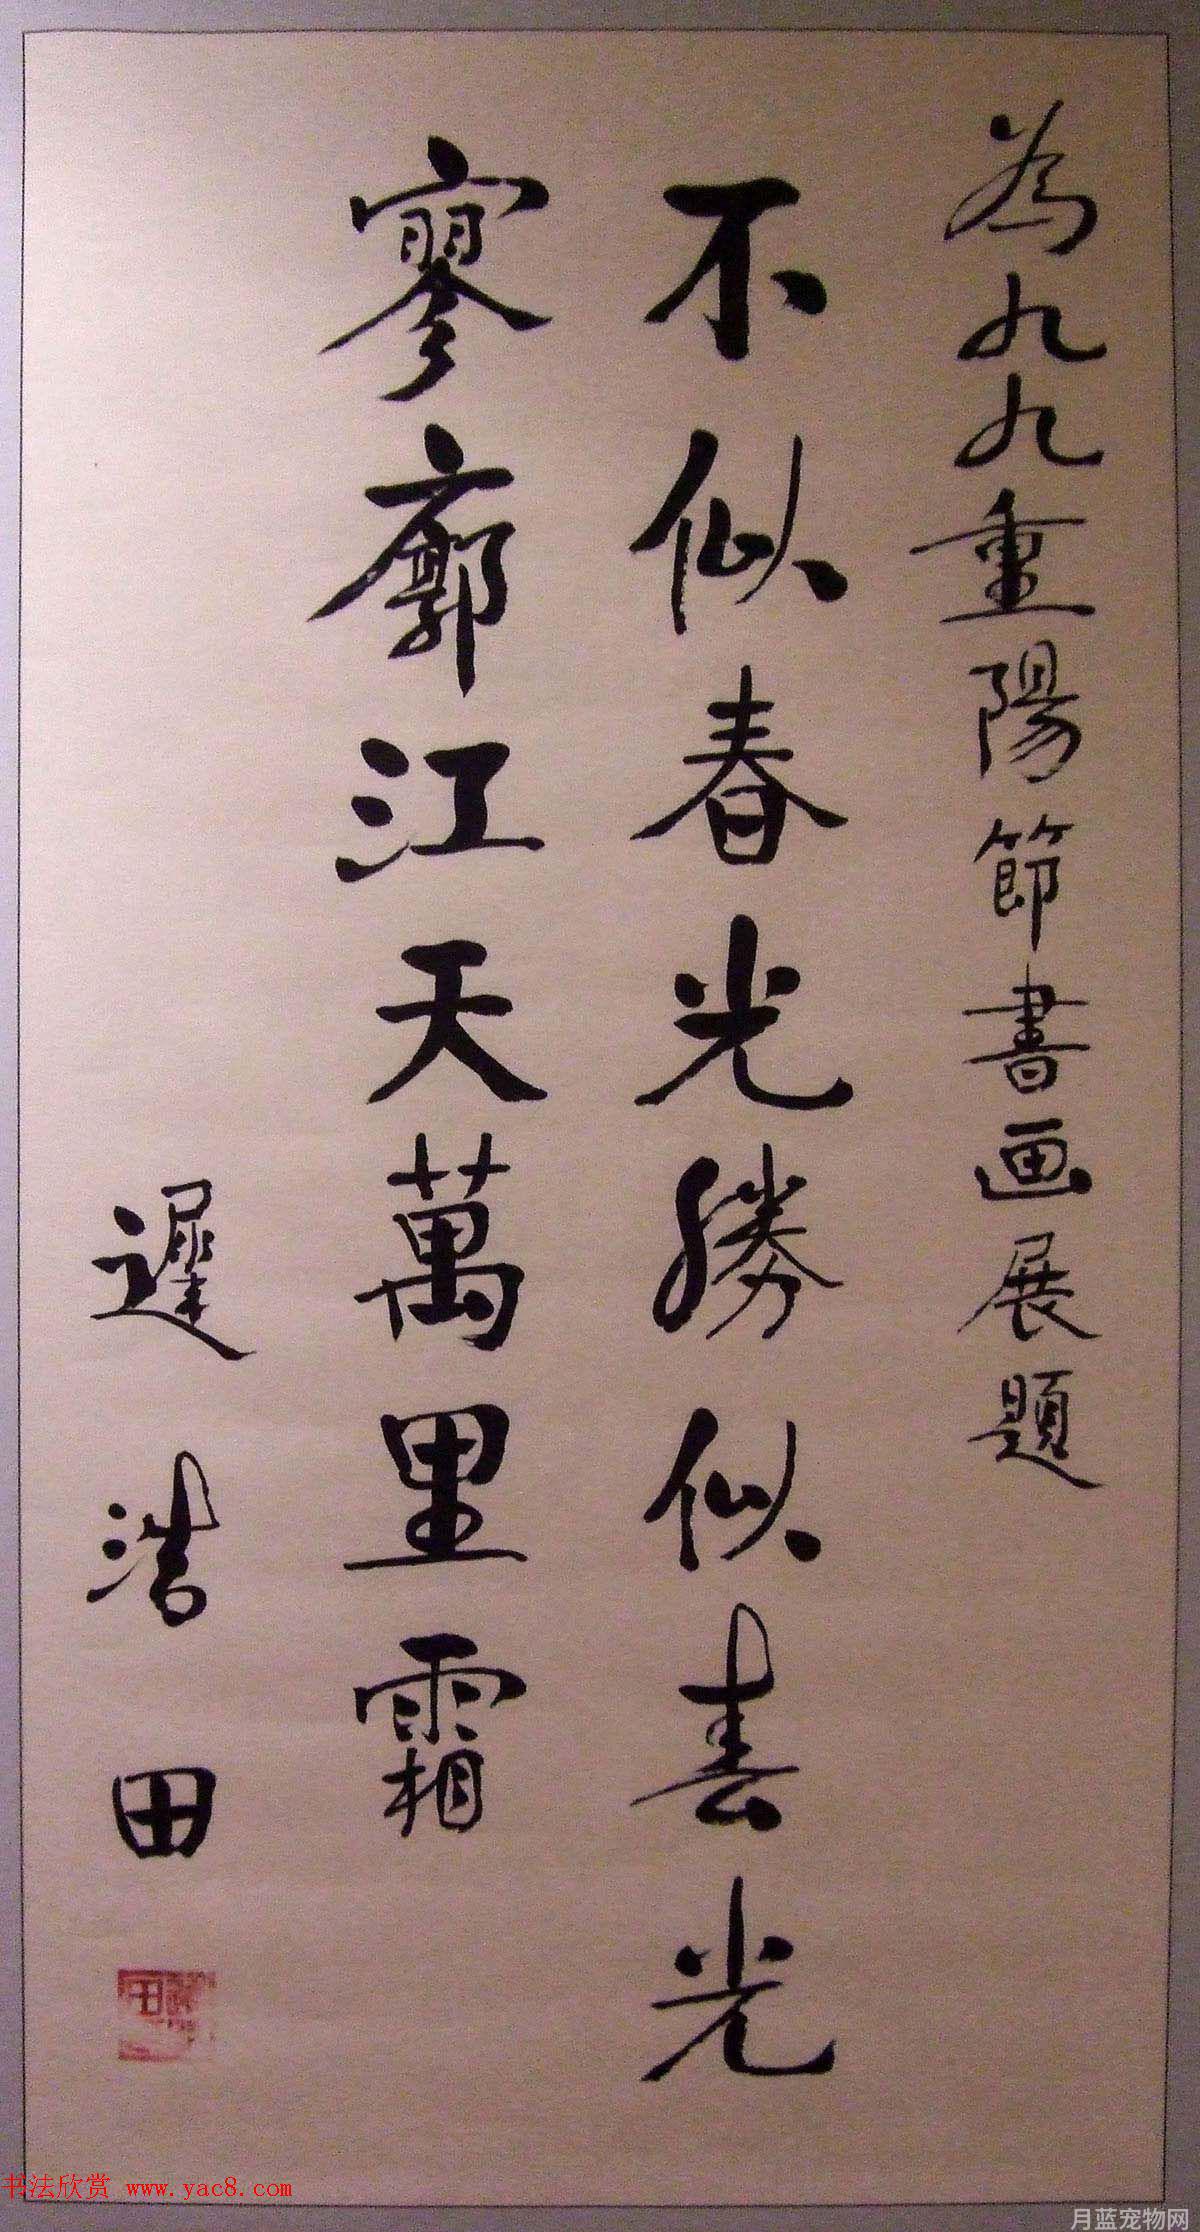 為九九重陽節書画展題
不似春光勝似春光
寥廓江天萬里霜
遲浩田
书法欣赏 www.yac8.com
月蓝宠物网